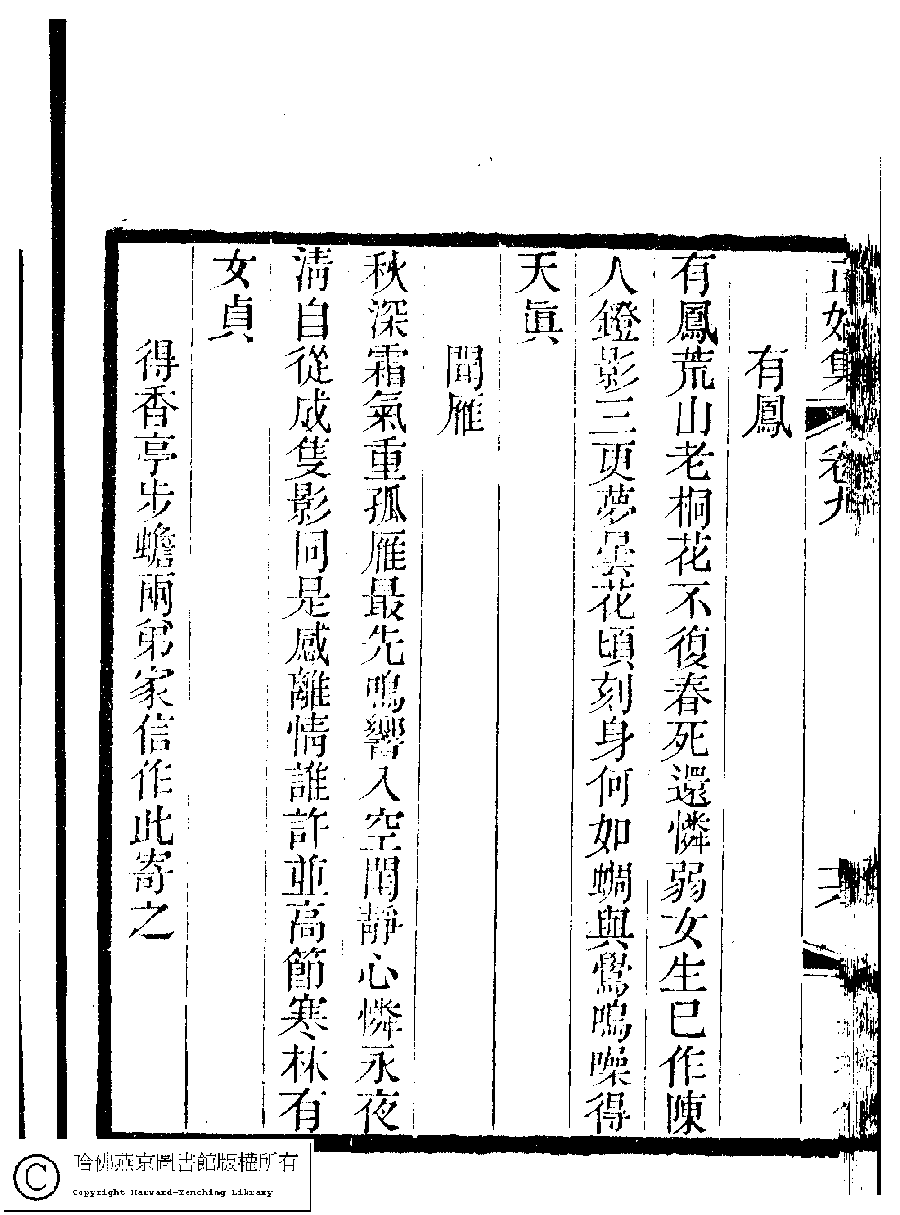 卷九
有鳳
有鳳荒山老桐花不復春死還憐弱女生已作陳
人鐙影三更夢曇花頃刻身何如蜩與鷽鳴噪得
天眞
聞雁
秋深霜氣重孤雁最先鳴響入空閨靜心憐永夜
清自從成隻影同是感離情誰許並高節寒林有
女貞
得香亭步蟾兩弟家信作此寄之
哈佛燕京圖書館版權所有
Copyright Harvard-Yenching Library